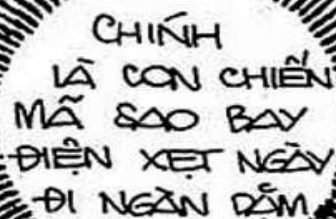 CHÍNH
LÀ CON CHIẾN
MÃ SAO BAY
ĐIỆN XẸT NGÀY
ĐI NGÀN DẶM